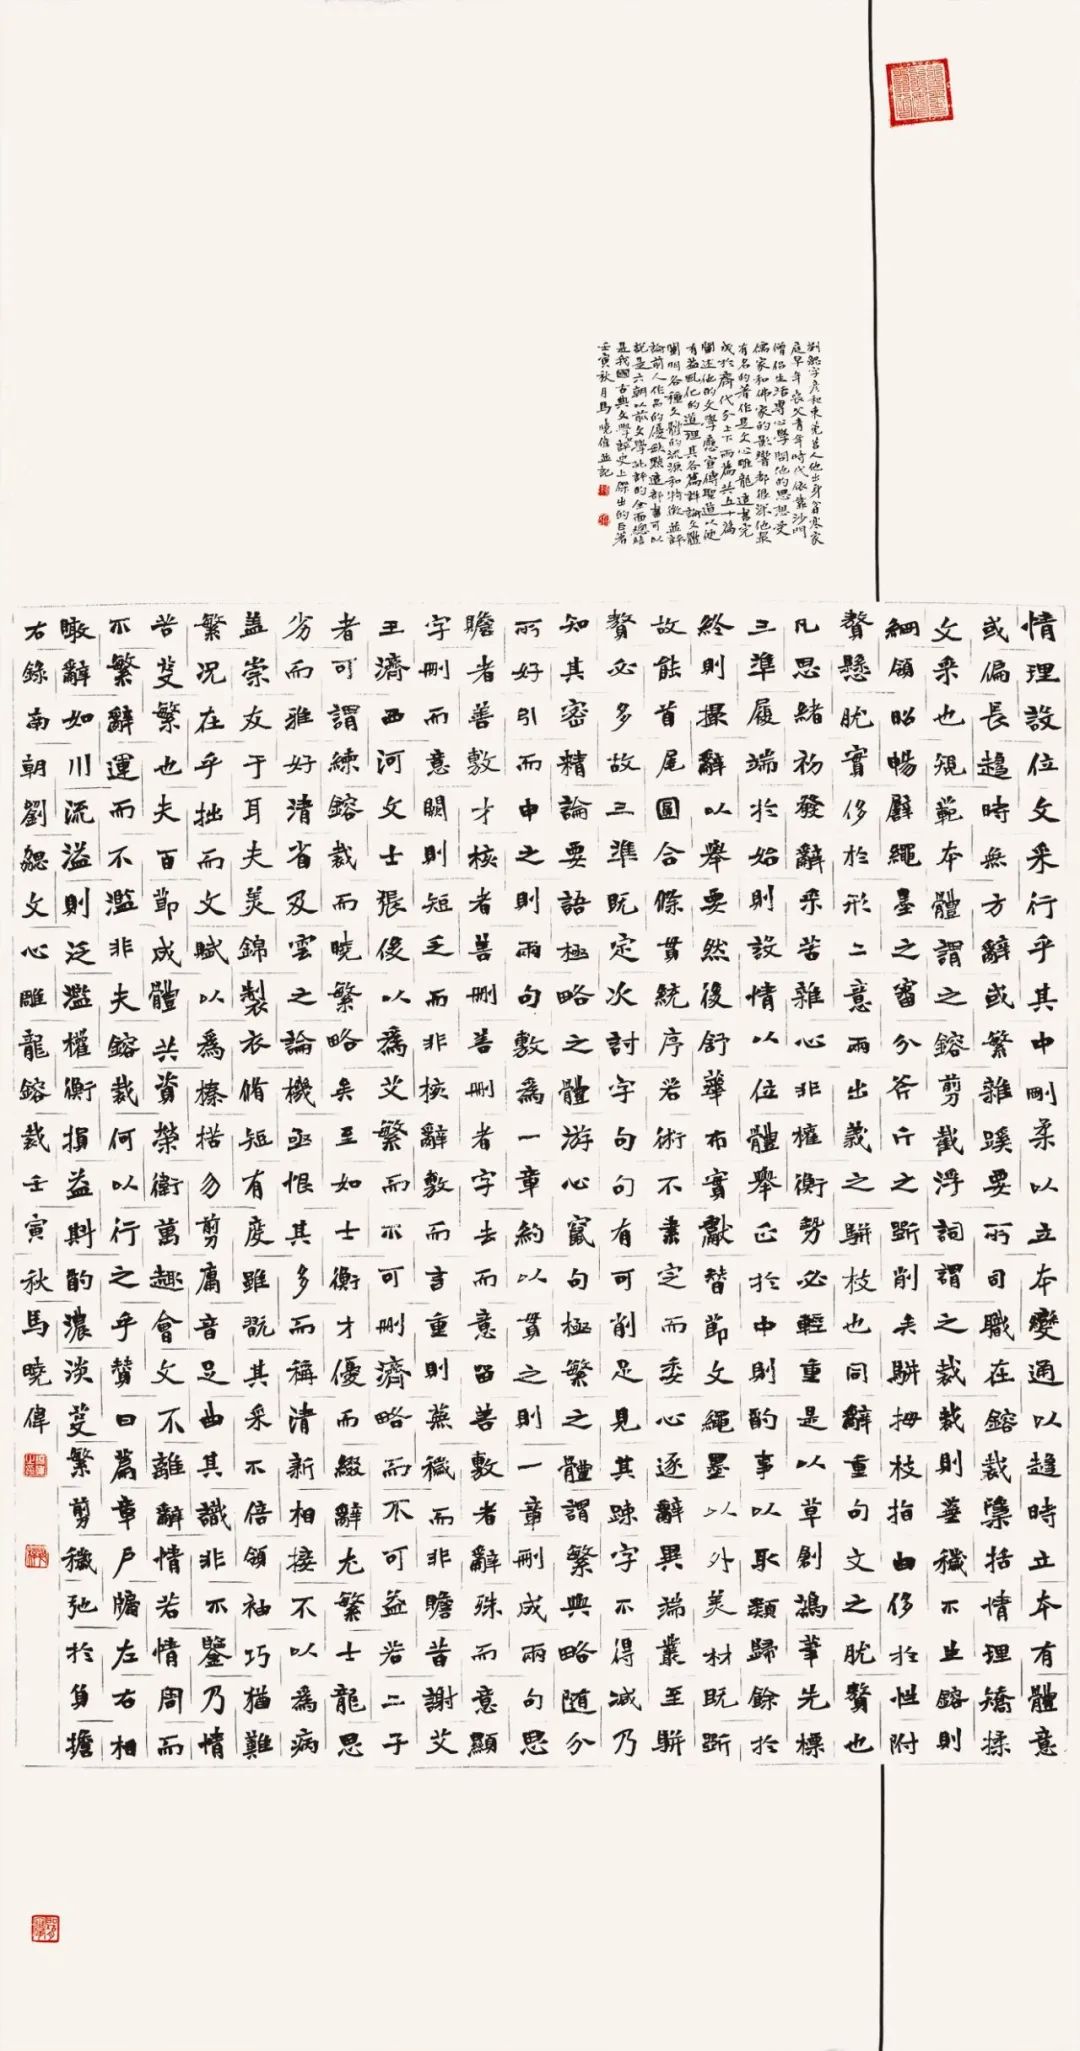 劉勰字彦和東莞莒人他出身貧寒家
庭早年喪父青年時代依靠沙門
僧侣生活專心學問他的思想受
儒家和佛家的影響都很深他最
有名的著作是文心雕龍這書完
成於齊代分上下兩篇共五十篇
闡述他的文學應宣傳聖道以便
有益風化的道理其各篇詳論文體
闡明各種文體的流源和特徵並評
論前人作品的優缺點這部書可以
説是六朝以前文學批評的全面總結
是我國古典文學評史上傑出的巨著
壬寅秋月馬曉偉並記
情理設位文采行乎其中剛柔以立本變通以趨時立本有體意
或偏長趨時無方辭或繁雜蹊要所司職在鎔裁檃括情理矯揉
文采也規範本體謂之鎔剪截浮詞謂之裁裁則蕪穢不生鎔則
綱領昭暢辟繩墨之審分斧斤之斲削矣駢拇枝指由侈於性附
贅懸肬實侈於形二意兩出義之駢枝也同辭重句文之肬贅也
凡思緒初發辭采苦雜心非權衡勢必輕重是以草創鴻筆先標
三準履端於始則設情以位體舉正於中則酌事以取類歸餘於
終則撮辭以舉要然後舒華布實獻替節文繩墨以外美材既斲
故能首尾圓合條貫統序若術不素定而委心逐辭異端叢至駢
贅必多故三準既定次討字句句有可削足見其疎字不得減乃
知其密精論要語極略之體游心竄句極繁之體謂繁與略随分
所好引而申之則兩句敷為一章約以貫之則一章刪成兩句思
贍者善敷才核者善刪善刪者字去而意留善敷者辭殊而意顯
字刪而意闕則短乏而非核辭敷而言重則蕪穢而非贍昔謝艾
王濟西河文士張俊以為艾繁而不可刪濟略而不可益若二子
者可謂練鎔裁而曉繁略矣至如士衡才優而綴辭尤繁士龍思
劣而雅好清省及雲之論機亟恨其多而稱清新相接不以為病
蓋崇友于耳夫美錦製衣脩短有度雖翫其采不倍領袖巧猶難
繁況在乎拙而文賦以為榛楛勿剪庸音足曲其識非不鑒乃情
苦芟繁也夫百節成體共資榮衛萬趣會文不離辭情若情周而
不繁辭運而不濫非夫鎔裁何以行之乎贊曰篇章戶牖左右相
瞰辭如川流溢則泛濫權衡損益斟酌濃淡芟繁剪穢弛於負擔
右錄南朝劉勰文心雕龍鎔裁壬寅秋馬曉偉